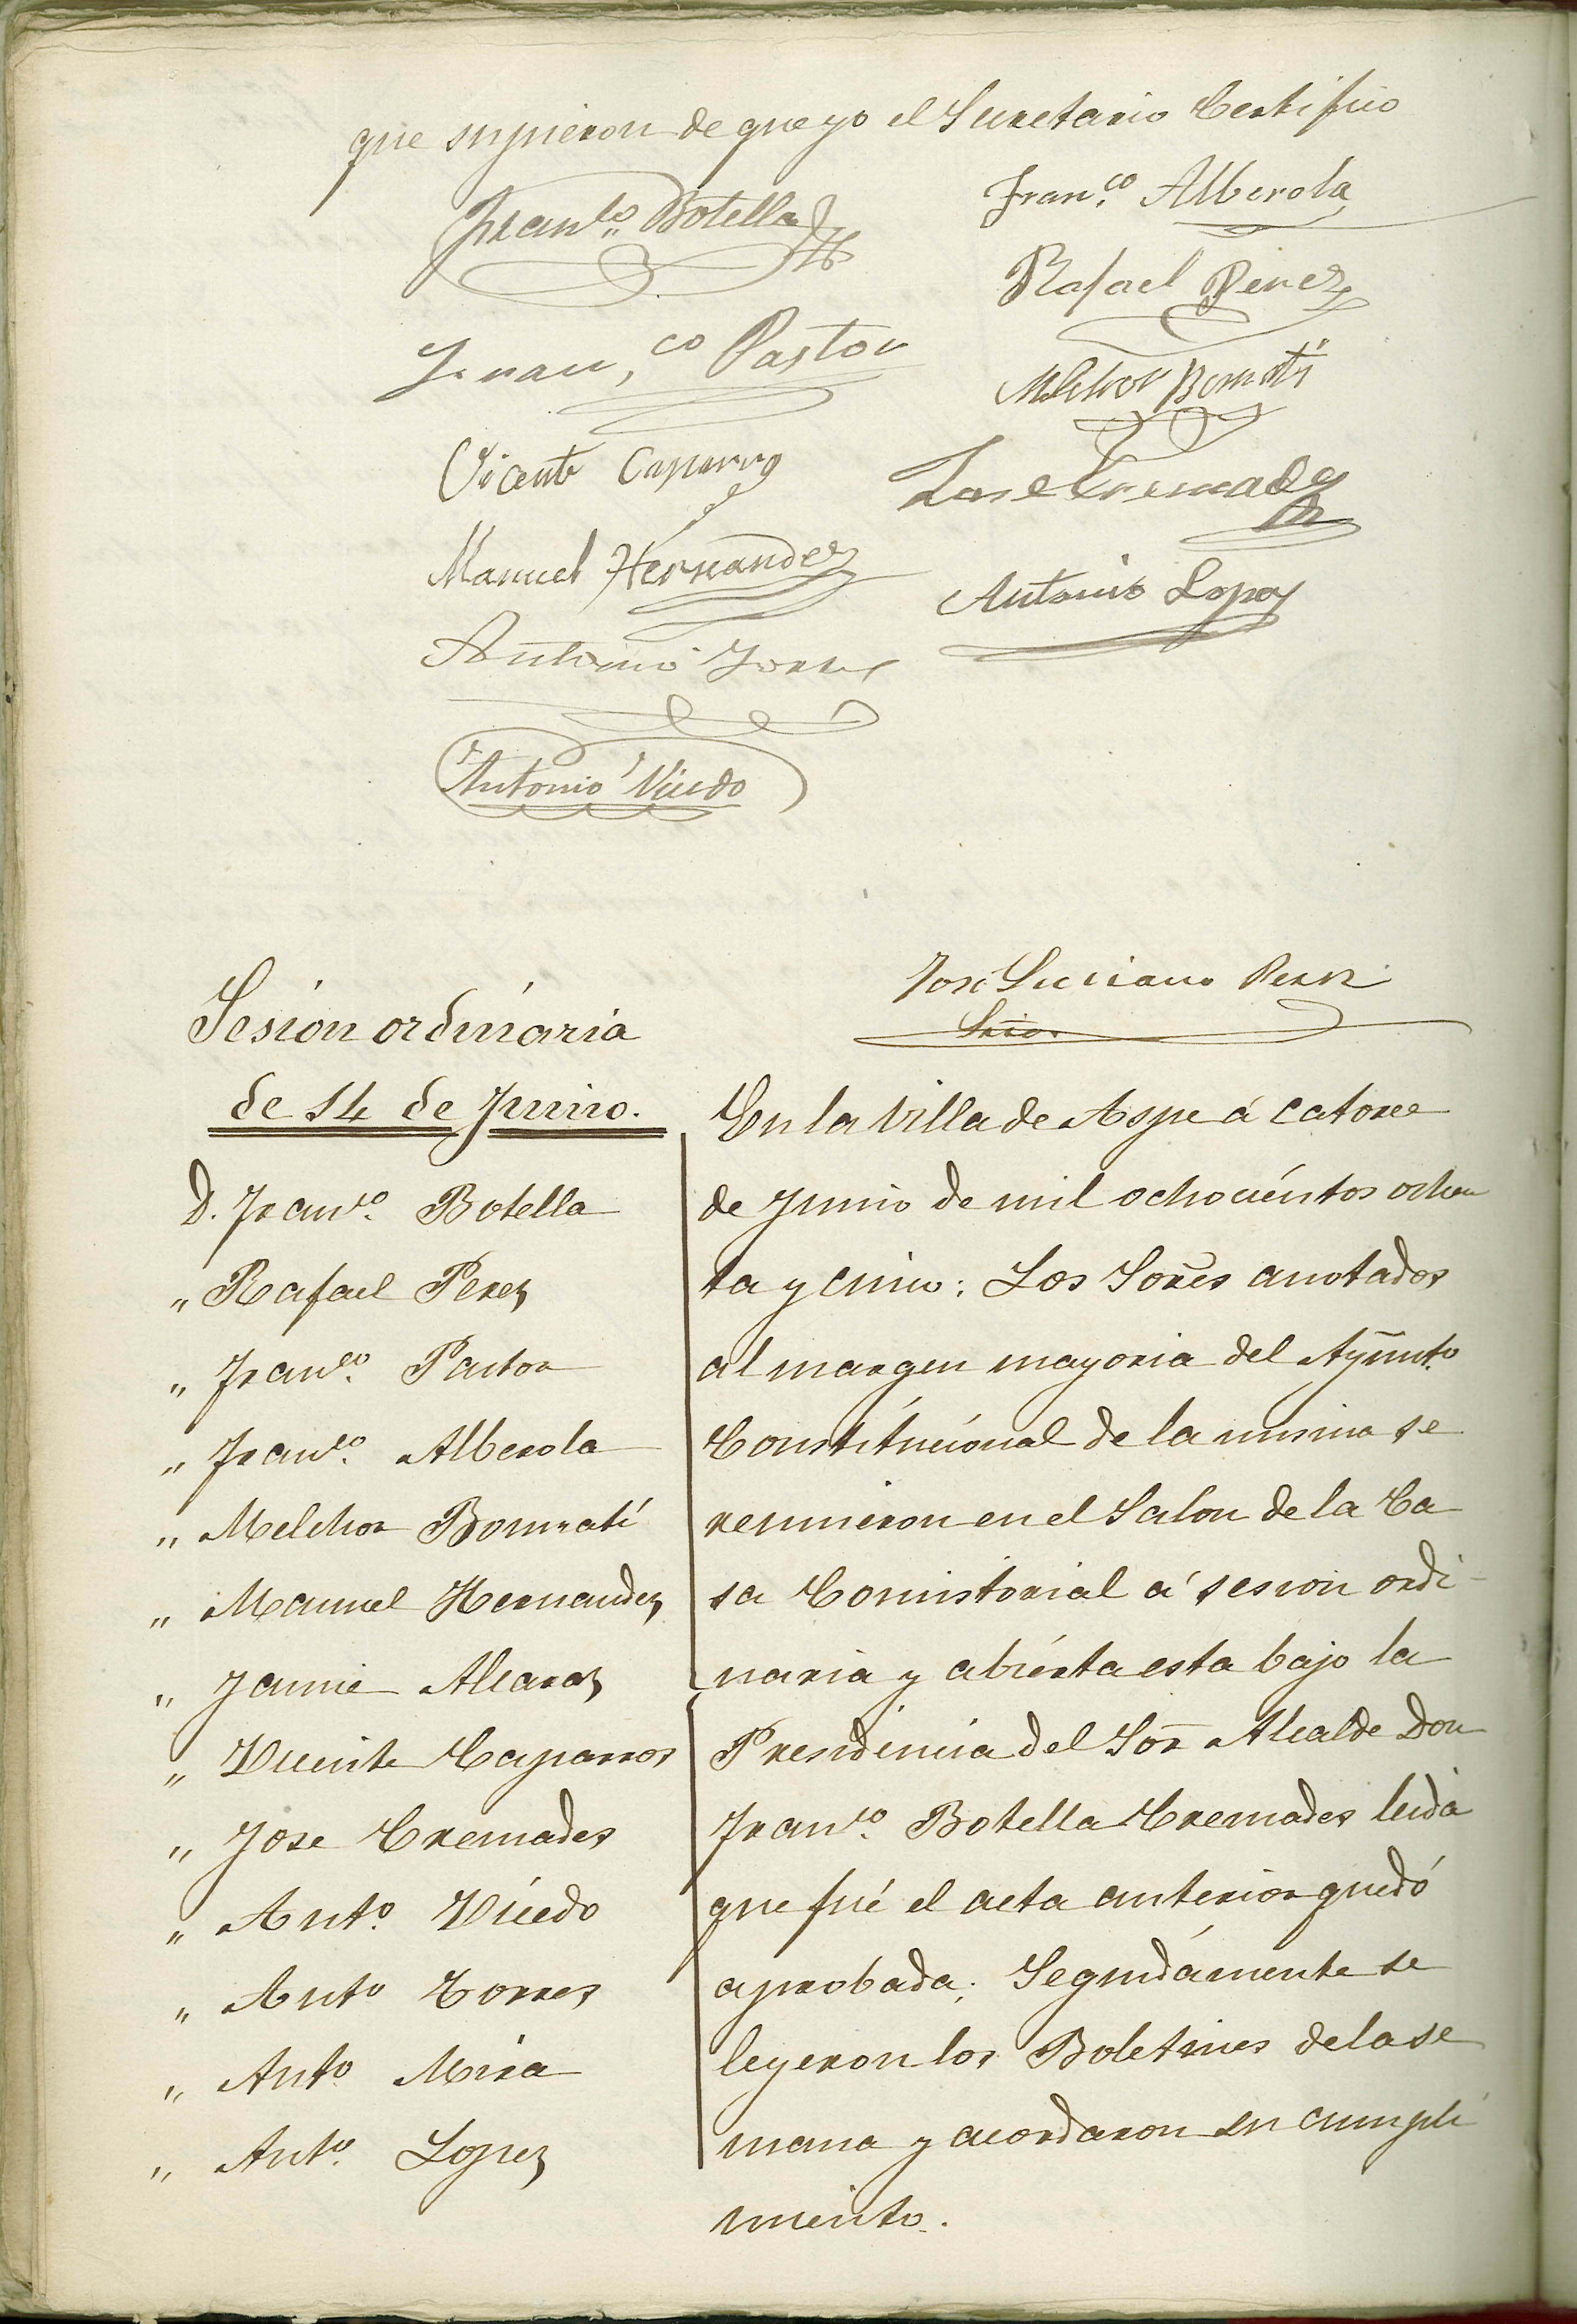 que supieron de que yo el Secretario Certifico
Fran.co Botella
Fran.co Alberola
Rafael Perez
Fran,co Pastor
Melchor Bonmatí
Vicente Caparros
Jose Cremades
Manuel Hernandez
Antonio Lopez
Antonio Torres
Antonio Vicedo
José Luciano Perez
Srio.
Sesión ordinaria
de 14 de Junio.
D. Franco. Botella
„ Rafael Perez
„ Franco. Pastor
„ Franco. Alberola
„ Melchor Bonmatí
„ Manuel Hernandez
„ Jaime Alcaraz
„ Vicente Caparros
„ Jose Cremades
„ Anto. Vicedo
„ Anto Torres
„ Anto Mira
„ Anto. Lopez
En la Villa de Aspe á catorce
de Junio de mil ochocientos ochen
ta y cinco: Los Sores anotados
al margen mayoria del Ayunto.
Constitucional de la misma se
reunieron en el Salon de la Ca
sa Consistorial á sesion ordi-
naria y abierta esta bajo la
Presidencia del Sor Alcalde Don
Franco. Botella Cremades leida
que fué el acta anterior quedó
aprobada; Segundamente se
leyeron los Boletines de la se
mana y acordaron su cumpli
miento.